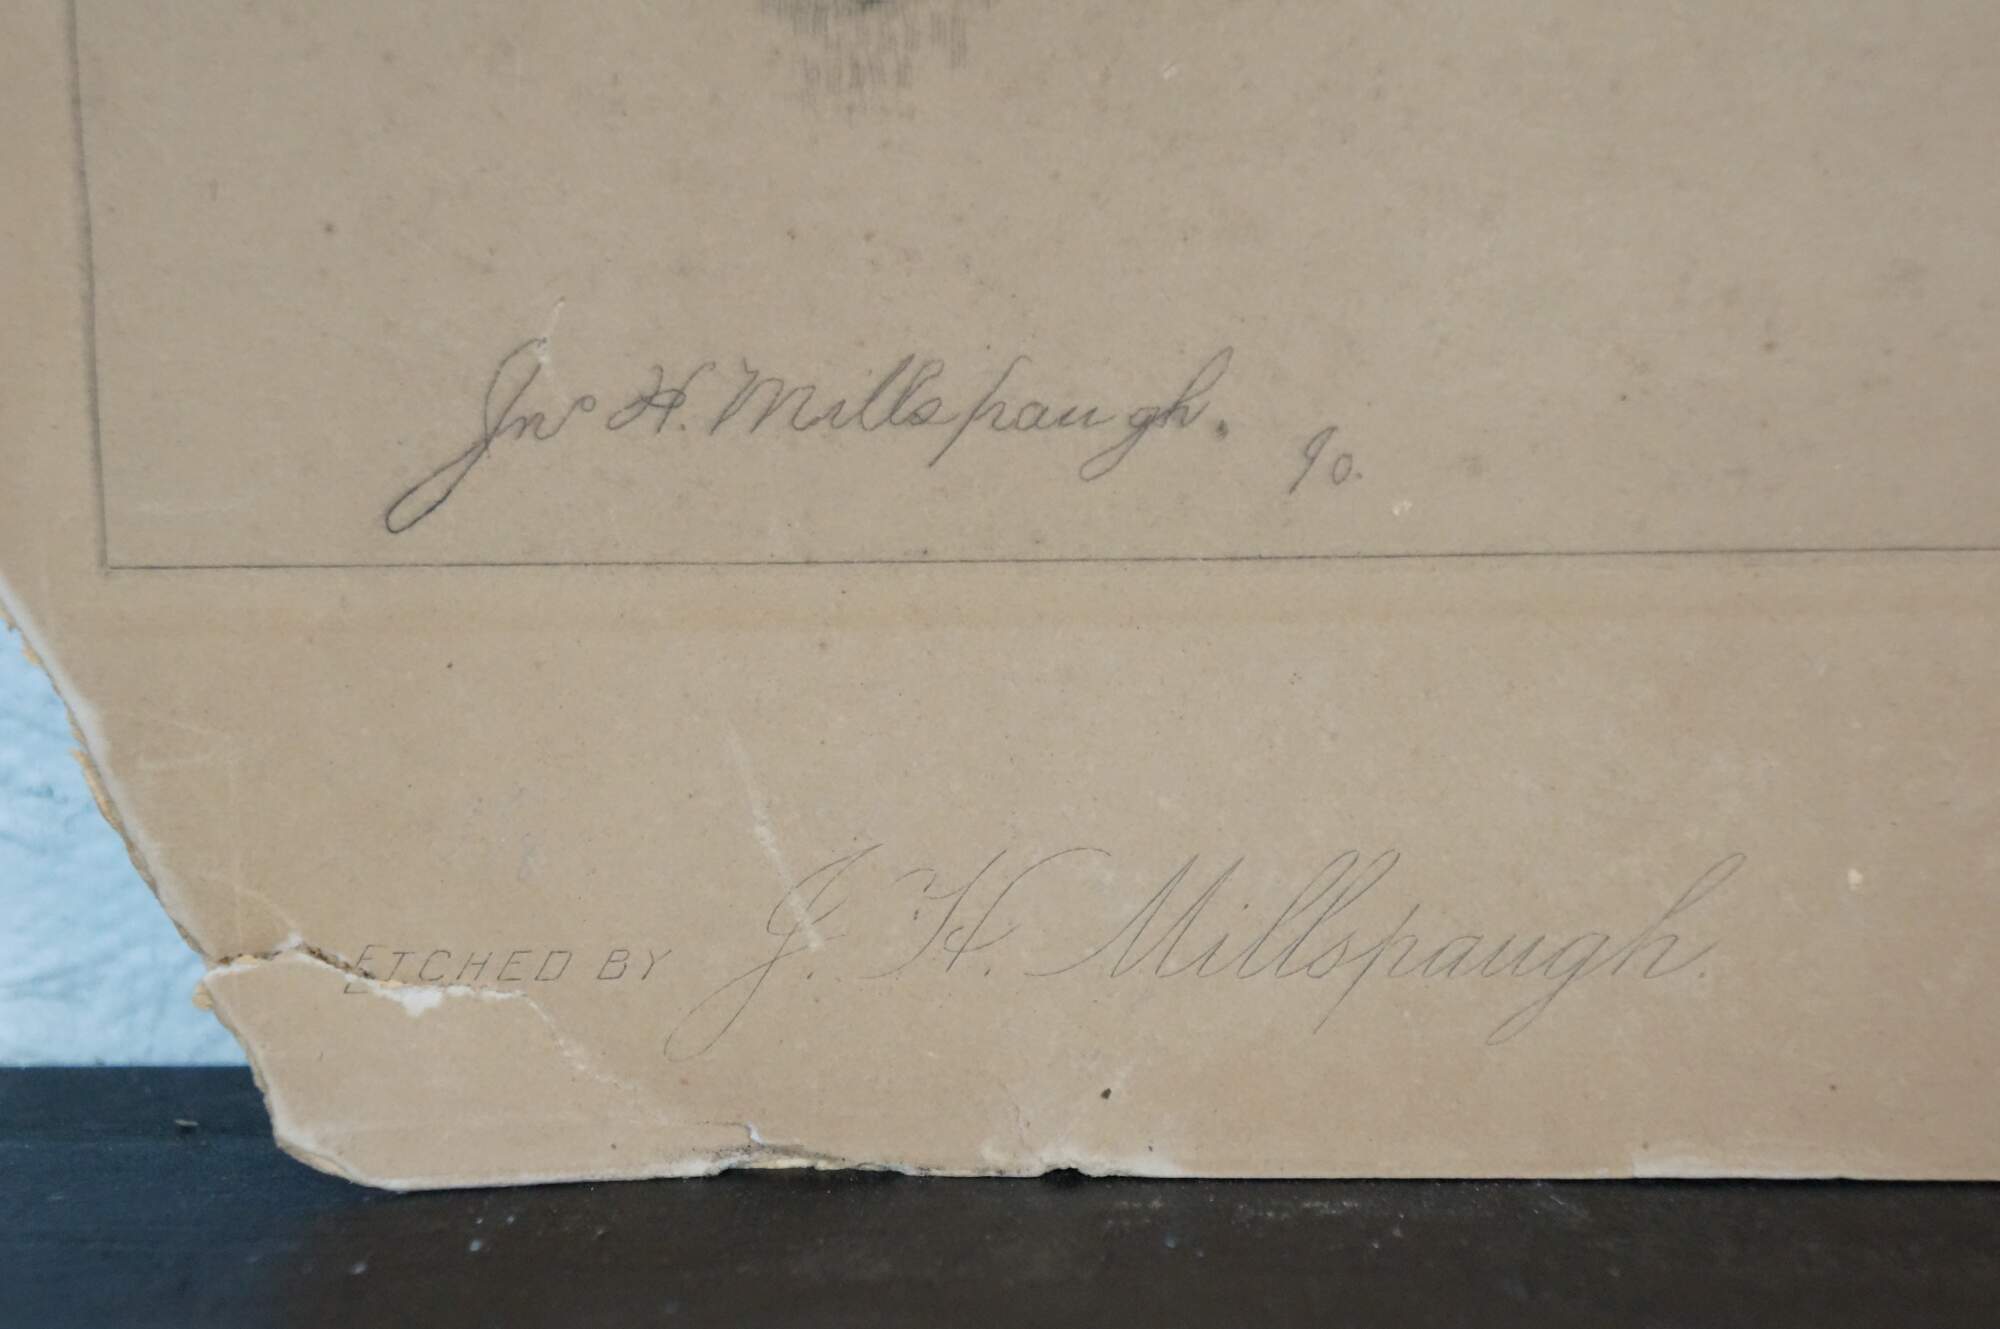 Jno H. Millspaugh. 90.
ETCHED BY J. H. Millspaugh.